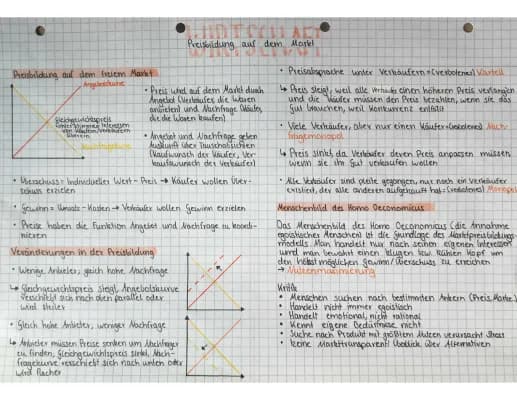 WIRTSCHAFT
Preisbildung auf dem Markt
Preisbildung auf dem freiem Markt
Angebotskurve
Gleichgewichtspreis
Nachfragekurve
• Preis wird auf dem Markt durch
Angebot (Verkäufer, die Waren
anbieten) und Nachfrage (Käufer,
die die Waren kaufen)
• Angebot und Nachfrage geben
Auskunft über Tauschabsichten
(Kaufwunsch der Käufer, Ver-
kaufswunsch der Verkäufer)
• Überschuss = Individueller Wert - Preis → Käufer wollen Über-
schuss erzielen
• Gewinn = Umsatz - Kosten → Verkäufer wollen Gewinn erzielen
• Preise haben die Funktion Angebot und Nachfrage zu koordi-
nieren
Veränderungen in der Preisbildung
• Wenige Anbieter, gleich hohe Nachfrage
↳ Gleichgewichtspreis steigt, Angebotskurve
verschiebt sich nach oben parallel oder
wird steiler
• Gleich hohe Anbieter, weniger Nachfrage
↳ Anbieter müssen Preise senken um Nachfrager
zu finden, Gleichgewichtspreis sinkt, Nach-
fragekurve verschiebt sich nach unten oder
wird flacher
• Preisabsprache unter Verkäufern = (verbotenes) Kartell
↳ Preis steigt, weil alle Verkäufer einen höheren Preis verlangen
und die Käufer müssen den Preis bezahlen, wenn sie das
Gut brauchen, weil Konkurrenz entfällt
• Viele Verkäufer, aber nur einen Käufer = (verbotenes) Nach-
fragemonopol
↳ Preis sinkt, da Verkäufer deren Preis anpassen müssen
wenn sie ihr Gut verkaufen wollen
• Alle Verkäufer sind pleite gegangen, nur noch ein Verkäufer
existiert, der alle anderen aufgekauft hat = (verbotenes) Monopol
Menschenbild des Homo Oeconomicus
Das Menschenbild des Homo Oeconomicus (die Annahme
egoistischer Menschen) ist die Grundlage des Marktpreisbildungs-
modells. Man handelt nur nach seinen eigenen Interessen
und man bewahrt einen klugen bzw. kühlen Kopf um
den höchst möglichen Gewinn/Überschuss zu erreichen
→ Nutzenmaximierung
Kritik
• Menschen suchen nach bestimmten Ankern (Preis, Marke)
• Handelt nicht immer egoistisch
• Handelt emotional, nicht rational
• Kennt eigene Bedürfnisse nicht
• Suche nach Produkt mit größtem Nutzen verursacht Stress
• keine Markttransparenz! Überblick über Alternativen